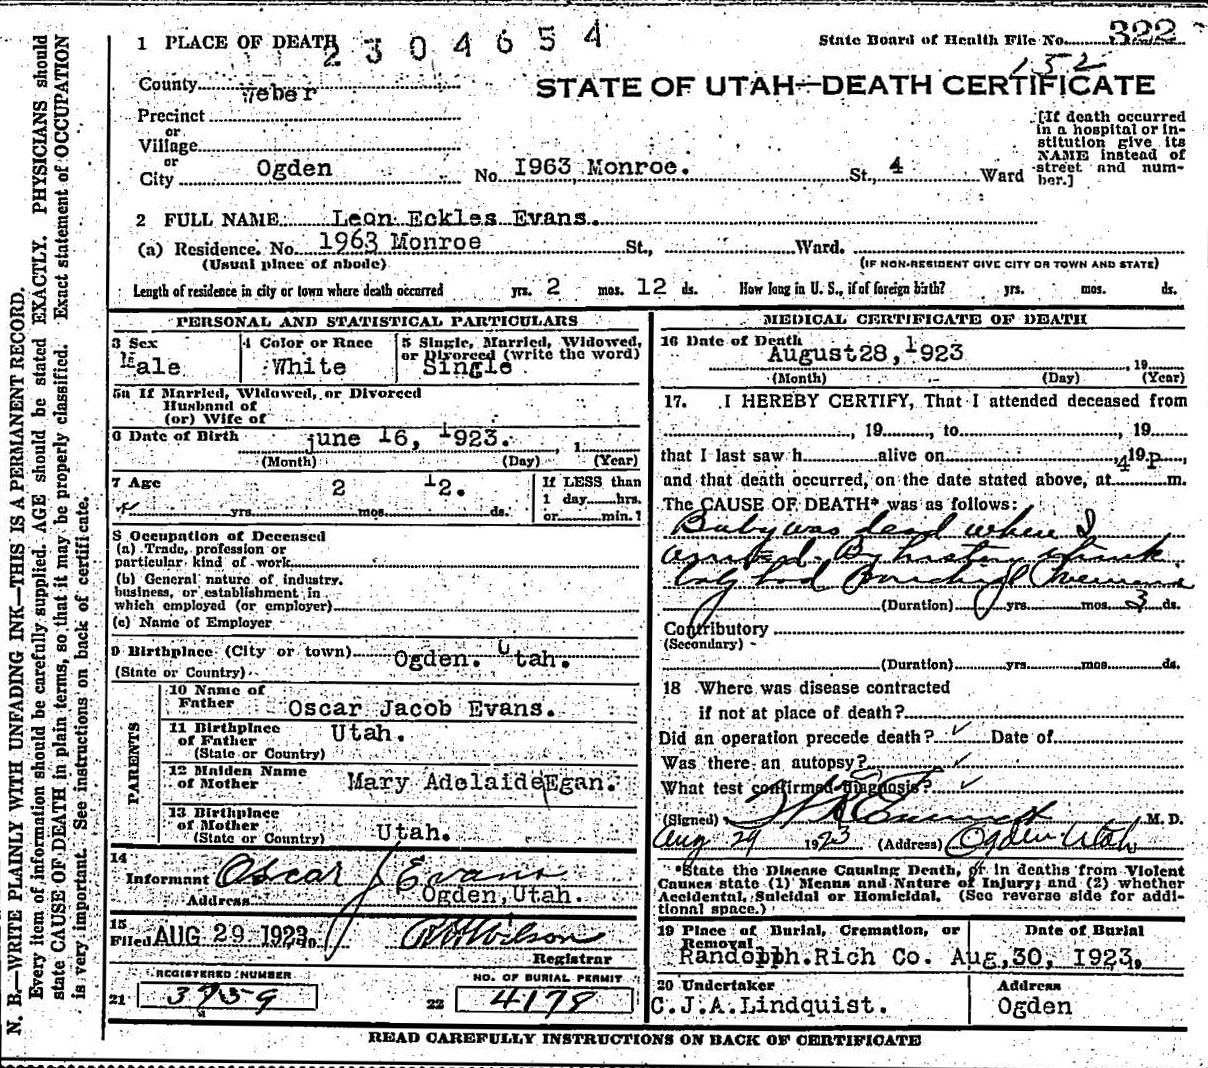 N. B.—WRITE PLAINLY WITH UNFADING INK—THIS IS A PERMANENT RECORD.
Every item of information should be carefully supplied. AGE should be stated EXACTLY. PHYSICIANS should
state CAUSE OF DEATH in plain terms, so that it may be properly classified. Exact statement of OCCUPATION
is very important. See instructions on back of certificate.
1 PLACE OF DEATH
2304654
State Board of Health File No. 322
152
County Weber
STATE OF UTAH—DEATH CERTIFICATE
Precinct
or
Village
or
City Ogden No. I963 Monroe. St., 4 Ward
[If death occurred
in a hospital or in-
stitution give its
NAME instead of
street and num-
ber.]
2 FULL NAME Leon Eckles Evans.
(a) Residence. No. 1963 Monroe St., Ward.
(Usual place of abode) (IF NON-RESIDENT GIVE CITY OR TOWN AND STATE)
Length of residence in city or town where death occurred yrs. 2 mos. 12 ds. How long in U. S., if of foreign birth? yrs. mos. ds.
PERSONAL AND STATISTICAL PARTICULARS
3 Sex
Male
4 Color or Race
White
5 Single, Married, Widowed,
or Divorced (write the word)
Single
5a If Married, Widowed, or Divorced
Husband of
(or) Wife of
6 Date of Birth june 16, 1923. , 1
(Month) (Day) (Year)
7 Age 2 12.
yrs. mos. ds.
If LESS than
1 day hrs.
or min.?
8 Occupation of Deceased
(a) Trade, profession or
particular kind of work
(b) General nature of industry,
business, or establishment in
which employed (or employer)
(c) Name of Employer
9 Birthplace (City or town) Ogden. Utah.
(State or Country)
PARENTS
10 Name of
Father Oscar Jacob Evans.
11 Birthplace
of Father Utah.
(State or Country)
12 Maiden Name
of Mother Mary Adelaide Egan.
13 Birthplace
of Mother
(State or Country) Utah.
14
Informant Oscar J Evans
Address Ogden, Utah.
15
Filed AUG 29 1923
Wilson
Registrar
REGISTERED NUMBER
21
NO. OF BURIAL PERMIT
22 4178
MEDICAL CERTIFICATE OF DEATH
16 Date of Death
August 28, 1923 , 19
(Month) (Day) (Year)
17. I HEREBY CERTIFY, That I attended deceased from
, 19 , to , 19
that I last saw h alive on , 19 ,
and that death occurred, on the date stated above, at 4 P m.
The CAUSE OF DEATH* was as follows:
Baby was dead when I
arrived. By history think
had Bronchial Pneumonia
(Duration) yrs. mos. 3 ds.
Contributory
(Secondary)
(Duration) yrs. mos. ds.
18 Where was disease contracted
if not at place of death?
Did an operation precede death? Date of
Was there an autopsy?
What test confirmed diagnosis?
(Signed) M. D.
Aug 29 1923 (Address) Ogden Utah
*State the Disease Causing Death, or in deaths from Violent
Causes state (1) Means and Nature of Injury; and (2) whether
Accidental, Suicidal or Homicidal. (See reverse side for addi-
tional space.)
19 Place of Burial, Cremation, or
Removal
Randolph. Rich Co.
Date of Burial
Aug, 30, 1923,
20 Undertaker
C.J.A.Lindquist.
Address
Ogden
READ CAREFULLY INSTRUCTIONS ON BACK OF CERTIFICATE